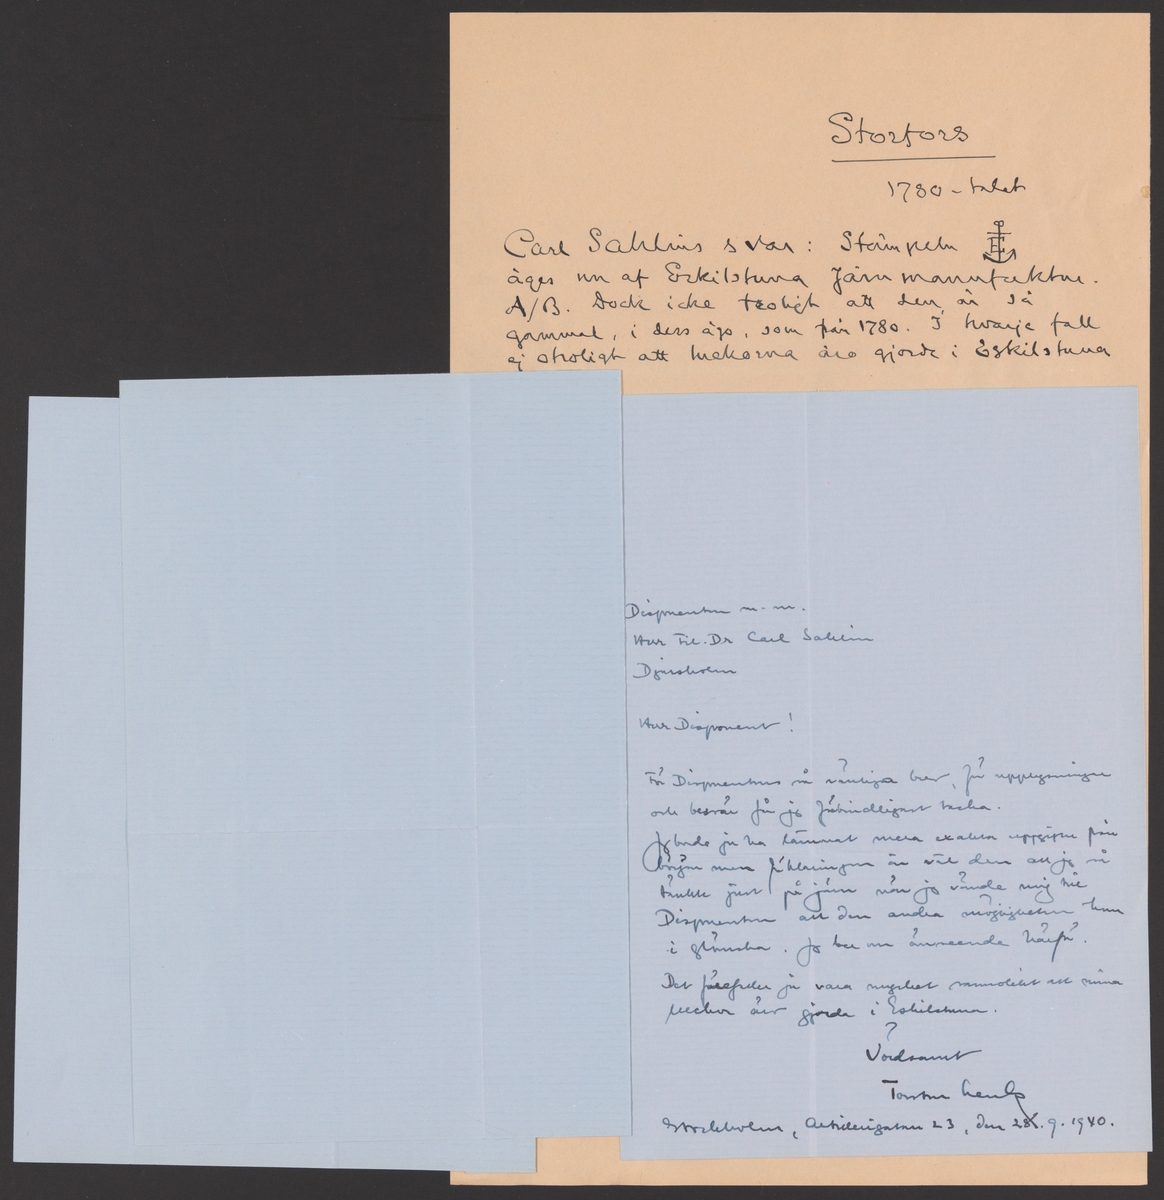 Storfors
1780-talet
Carl Sahlins svar: Stämpeln E
äges nu af Eskilstuna Järnmanufaktur.
A/B. Dock icke troligt att den är så
gammal, i ders ägo, som från 1780. I hvarje fall
ej otroligt att luckorna äro gjorda i Eskilstuna
Disponenten m. m.
Herr Fil. Dr Carl Sahlin
Djursholm
Herr Disponent!
För Disponentens så vänliga brev, för upplysningar
och besvär får jag förbindligast tacka.
Jag borde ju ha lämnat mera exakta uppgifter från
början men förklaringen är väl den att jag så
tänkte just på järn när jag vände mig till
Disponenten att den andra möjligheten kom
i glömska. Jag ber om överseende härför.
Det förefaller ju vara mycket sannolikt att mina
luckor äro gjorda i Eskilstuna.
?
Vördsamt
Torsten
Stockholm, Artillerigatan 23, den 28. 9. 1940.